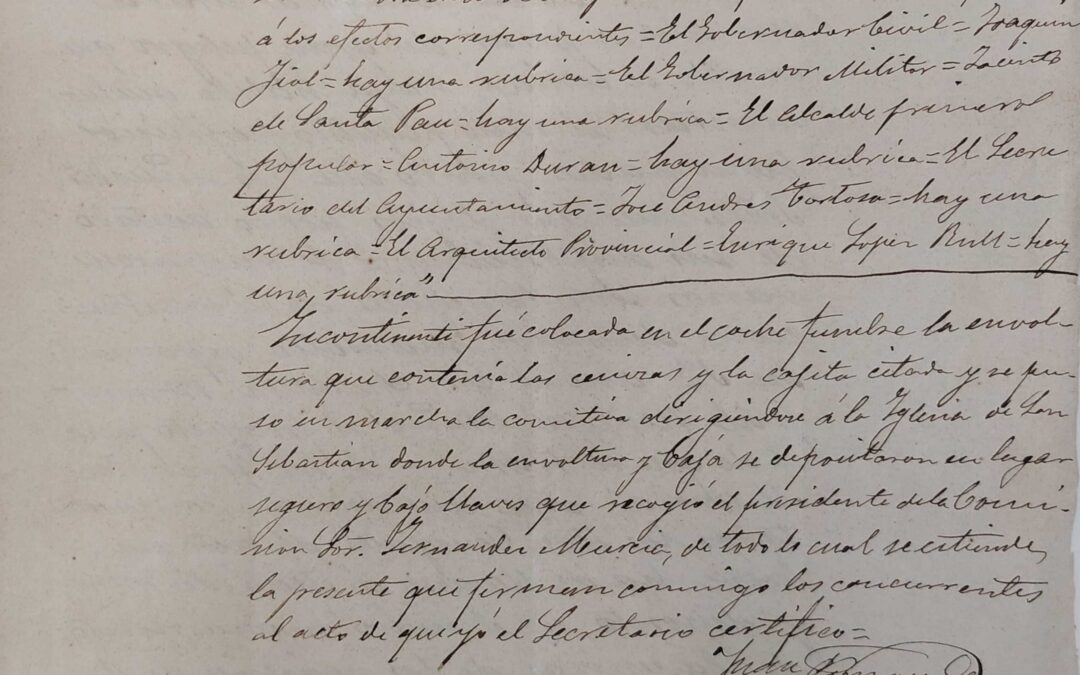 á los efectos correspondientes = El Gobernador Civil = Joaquin
Fiol = hay una rubrica = El Gobernador Militar = Jacinto
de Santa Pau = hay una rubrica = El Alcalde primero
popular = Antonio Duran = hay una rubrica = El Secre
tario del Ayuntamiento = Jose Andres Tortosa = hay una
rubrica = El Arquitecto Provincial = Enrique Lopez Rull = hay
una rubrica"
Incontinenti fué colocada en el coche funebre la envol-
tura que contenia las cenizas y la cajita citada y se pu-
so en marcha la comitiva dirigiendose á la Yglesia de San
Sebastian donde la envoltura y caja se depositaron en lugar
seguro y bajo llaves que recogió el presidente de la Comi-
sion Sor. Fernandez Murcia, de todo lo cual se estiende
la presente que firman conmigo los concurrentes
al acto de que yó el Secretario certifico =
Juan